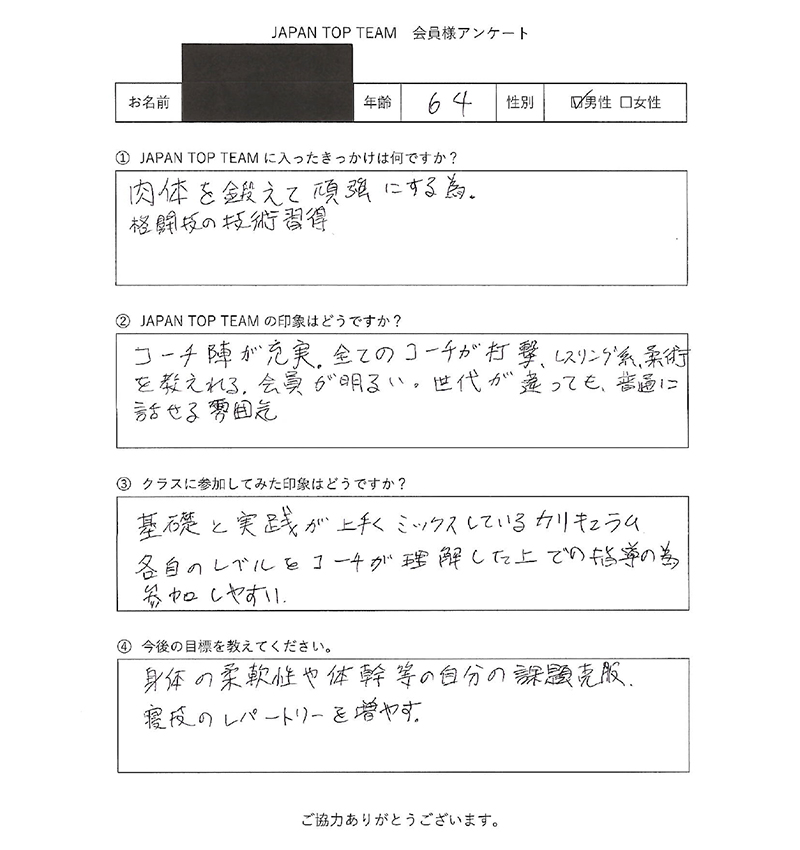 JAPAN TOP TEAM 会員様アンケート
お名前 年齢 64 性別 ☑男性 □女性
① JAPAN TOP TEAM に入ったきっかけは何ですか？
肉体を鍛えて頑強にする為。
格闘技の技術習得
② JAPAN TOP TEAM の印象はどうですか？
コーチ陣が充実。全てのコーチが打撃、レスリング系、柔術
を教えれる。会員が明るい。世代が違っても、普通に
話せる雰囲気
③ クラスに参加してみた印象はどうですか？
基礎と実践が上手くミックスしているカリキュラム
各自のレベルをコーチが理解した上での指導の為
参加しやすい。
④ 今後の目標を教えてください。
身体の柔軟性や体幹等の自分の課題克服。
寝技のレパートリーを増やす。
ご協力ありがとうございます。